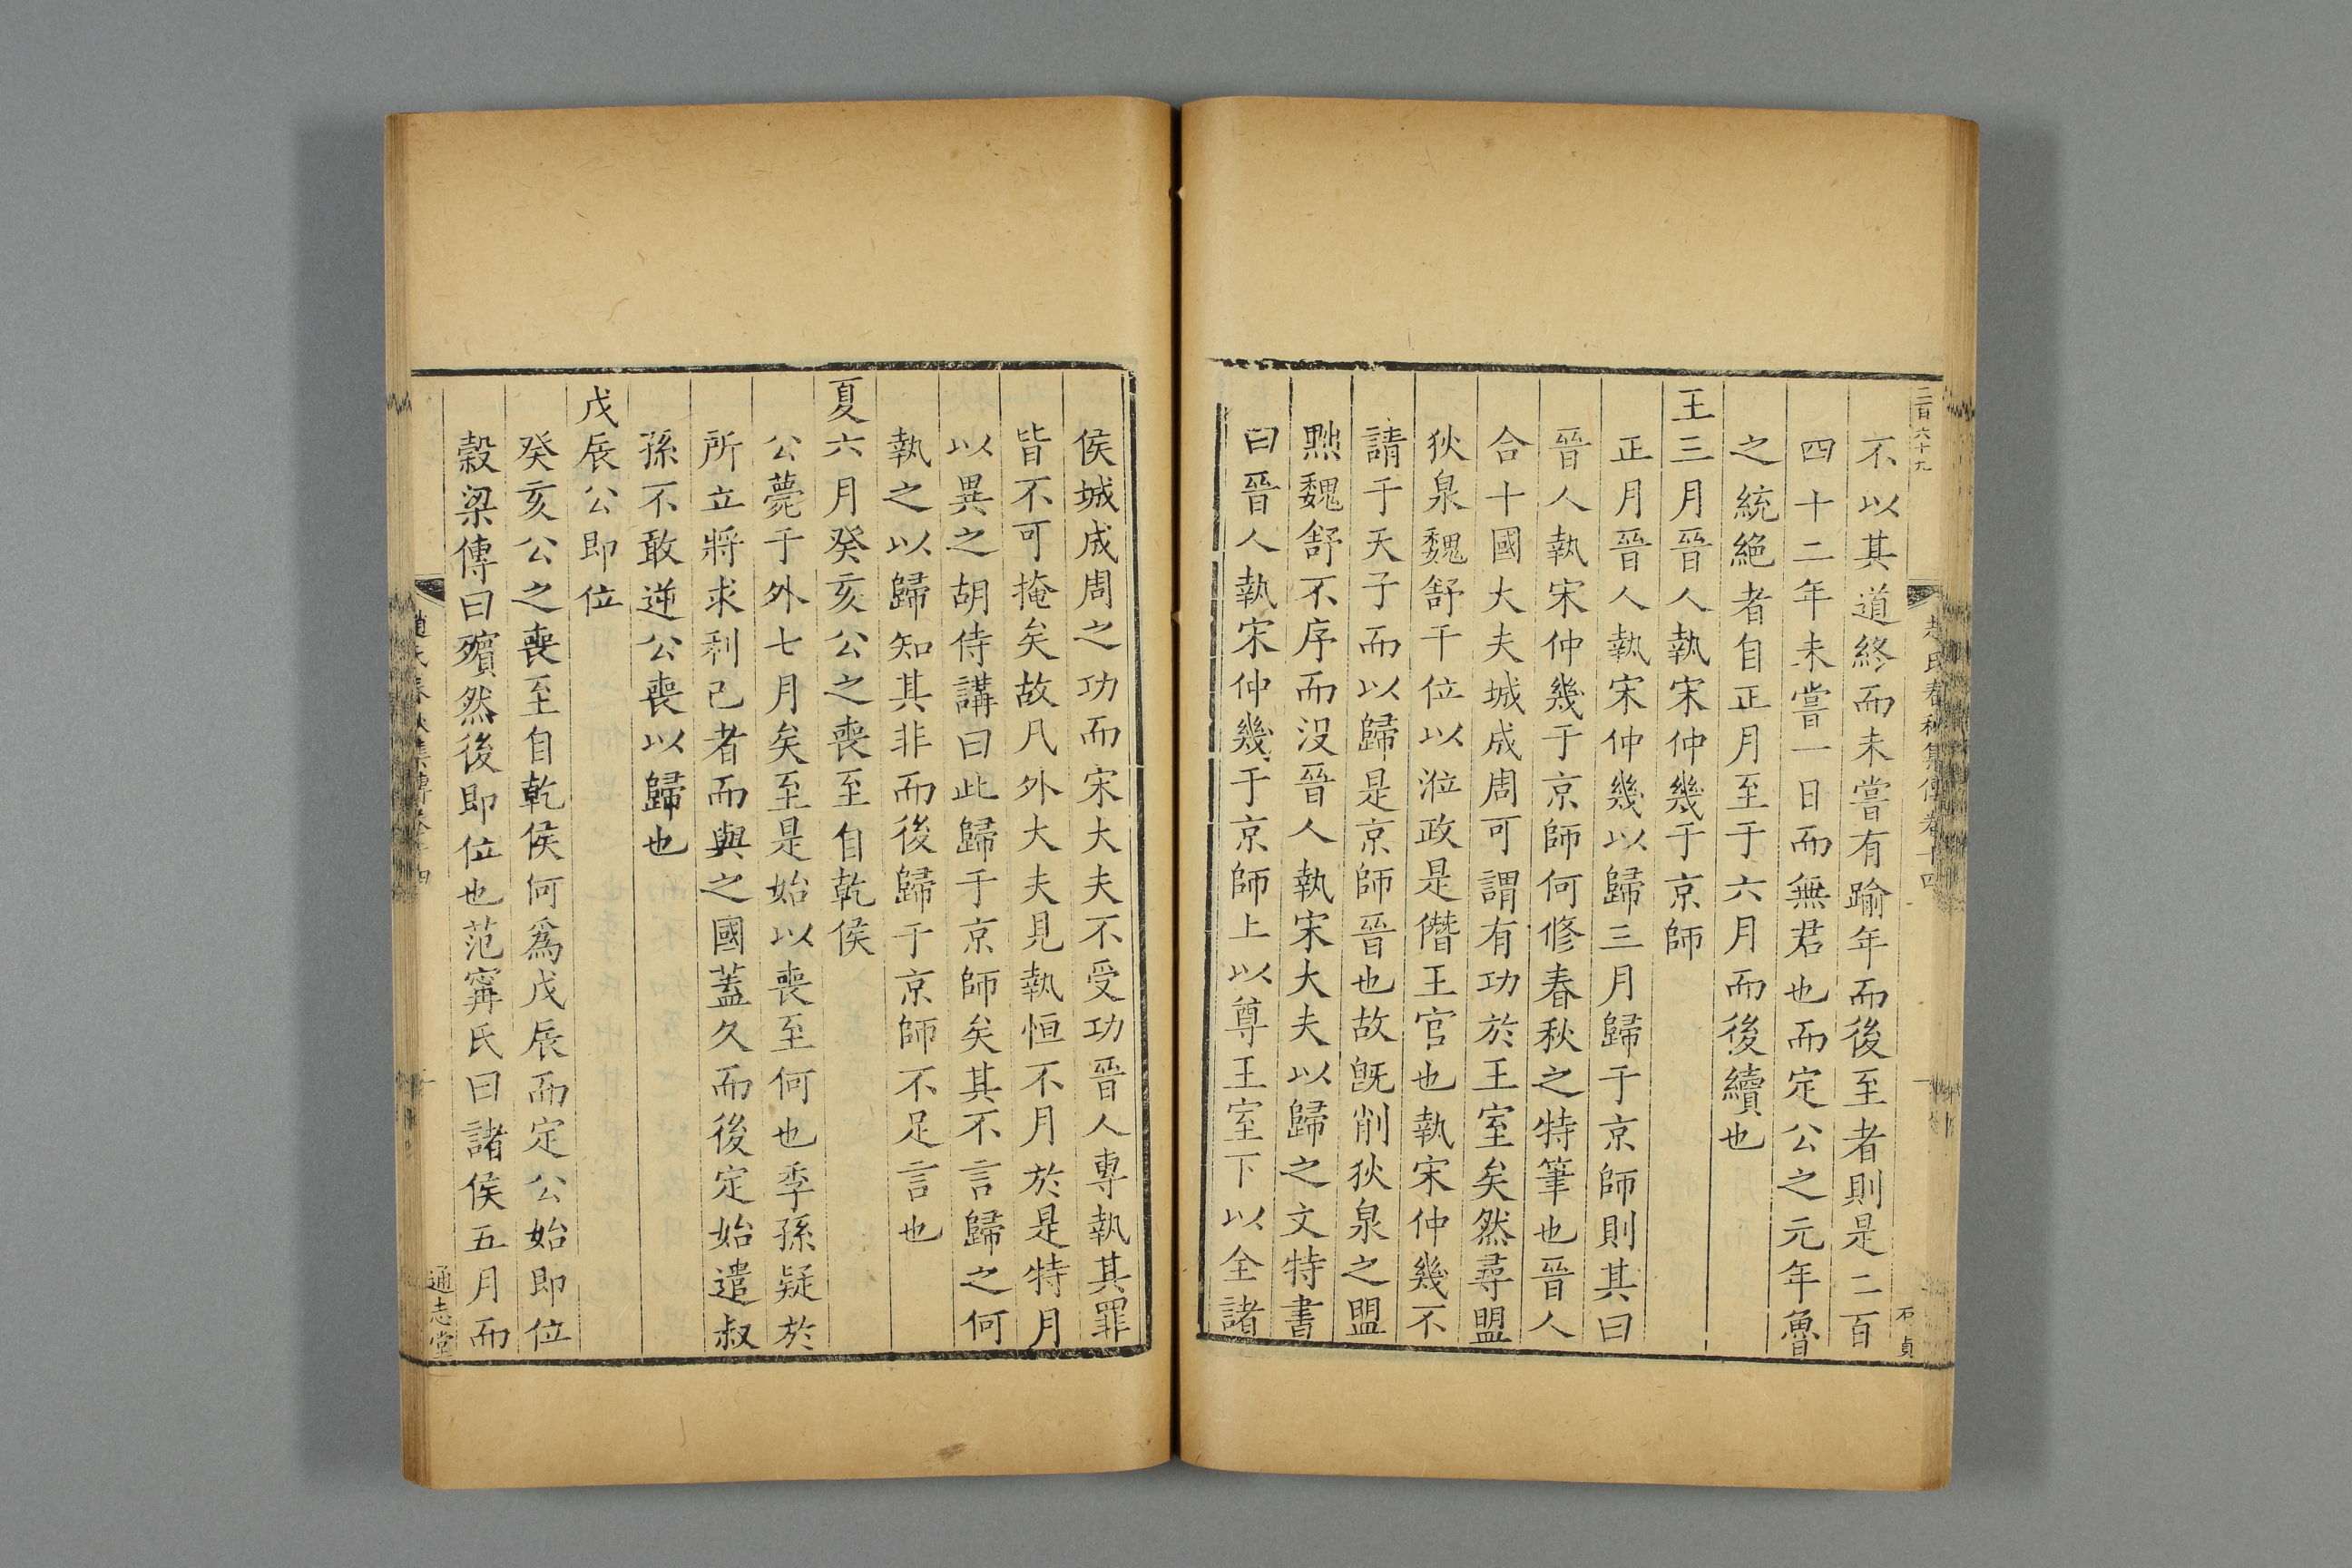 二百六十九
趙氏春秋集傳卷十四
石貞
不以其道終而未嘗有踰年而後至者則是二百
四十二年未嘗一日而無君也而定公之元年魯
之統絕者自正月至于六月而後續也
王三月晉人執宋仲幾于京師
正月晉人執宋仲幾以歸三月歸于京師則其曰
晉人執宋仲幾于京師何修春秋之特筆也晉人
合十國大夫城成周可謂有功於王室矣然尋盟
狄泉魏舒干位以涖政是僭王官也執宋仲幾不
請于天子而以歸是京師晉也故旣削狄泉之盟
黜魏舒不序而没晉人執宋大夫以歸之文特書
曰晉人執宋仲幾于京師上以尊王室下以全諸
侯城成周之功而宋大夫不受功晉人專執其罪
皆不可掩矣故凡外大夫見執恒不月於是特月
以異之胡侍講曰此歸于京師矣其不言歸之何
執之以歸知其非而後歸于京師不足言也
夏六月癸亥公之喪至自乾侯
公薨于外七月矣至是始以喪至何也季孫疑於
所立將求利己者而與之國蓋久而後定始遣叔
孫不敢逆公喪以歸也
戊辰公即位
癸亥公之喪至自乾侯何爲戊辰而定公始即位
穀梁傳曰殯然後即位也范甯氏曰諸侯五月而
趙氏春秋集傳卷十四
通志堂